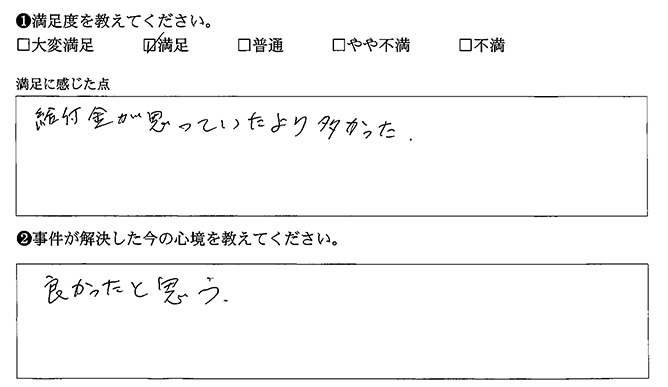 ❶満足度を教えてください。
□大変満足 ☑満足 □普通 □やや不満 □不満
満足に感じた点
給付金が思っていたより多かった.
❷事件が解決した今の心境を教えてください。
良かったと思う.